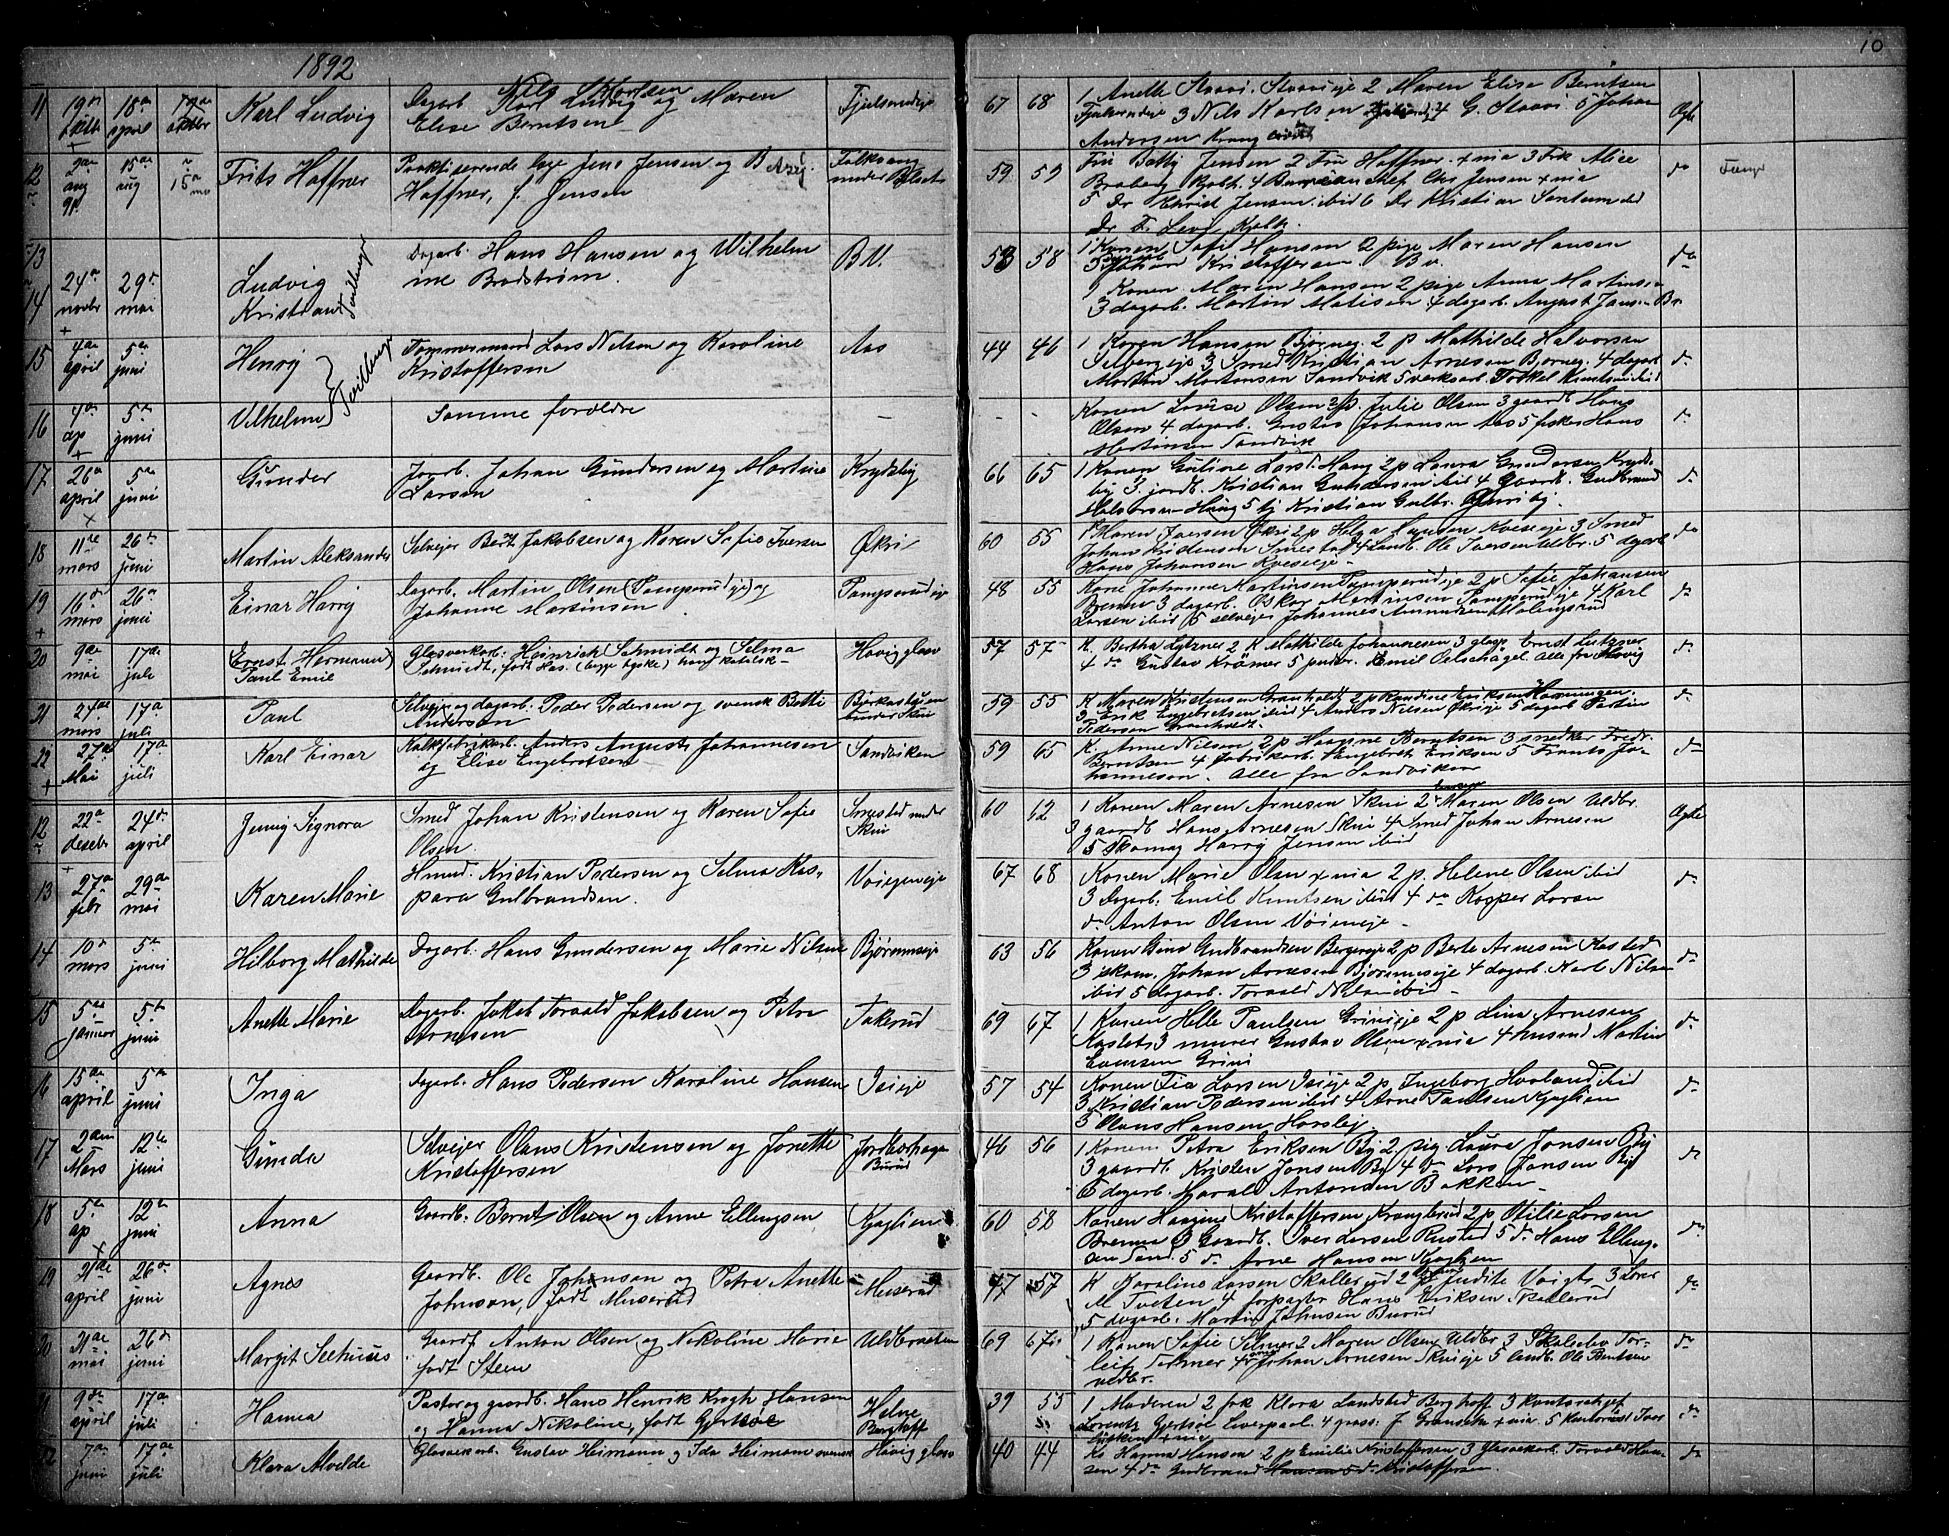 1892
10
11 19de oktbr 18de april Karl Ludvig Dagarb. Karl Ludvig og Maren
Nils Karlsen
Elise Berntsen
67 68 1 Anette Staavi. Staavieje 2 Maren Elise Berntsen
3 Nils Karlsen 4 G. Staavi 5 Johan
Andersen Krang
Ægte
12 2de aug 91 15de aug Frits Haffner Praktiserende læge Jens Jensen og B
Haffner, f. Jensen
59 59 Fru Betty Jensen 2 Fru Haffner Xnia 3 Frk Alice
Broberg Kbhn. 4 Bureauchef Chr Jensen Xnia
5 Dr Christ Jensen ibid 6 Dr Kristian
Dr F. Levi Kjøbh.
do
13
14 24de novbr 29de mai Ludvig
Kristian
Tvillinger
Dagarb. Hans Hansen og Wilhelm
ine Brodstrøm
B.V.
58 58 1 Konen Sofie Hansen 2 pige Maren Hansen
3 Johan Kristoffersen. Bv.
1 Konen Maren Hansen 2 pige Anna Martinsen
3 dagarb. Martin Matisen 4 dagarb. August Jans. Bv
do
15 4de april 5te juni Henry Tvillinger Tømmermand Lars Nilsen og Karoline
Kristoffersen
Aas
44 46 1 Karen Hansen Bjørneg. 2 p Mathilde Halvorsen
3 Smed Kristian Arnesen Bjørneg. 4 dagarb
Morten Mortensen Sandvik 5 verksarb. Torkel Knutsen ibid
do
16 4de ap 5te juni Vilhelm Samme forældre
-
- - Konen Louise Olsen 2 p. Julie Olsen 3 gaardb Hans
Olsen 4 dagarb. Gustav Johansen Aas 5 fisker Hans
Martinsen Sandvik
do
17 26de april 5te juni Gunder Jordb. Johan Gundersen og Martine
Larsen
Krydsby
66 65 1 Konen Guline Larsd. Haug 2 p Laura Gundersen Kryds-
by 3. jordb. Kristian Gundersen ibid 4 Gaardb. Gudbrand
Halvorsen Haug 5 tj Kristian Gulbr.
do
18 11te mars 26de juni Martin Aleksander Selvejer Bert Jakobsen og Karen Sofie Iversen
Økri
60 55 1 Maren Iversen Økri 2 p Helga Hansen Kveseje 3 Smed
Johan Kristensen Smestad 4 Landb. Ole Iversen Uldbr. 5 dagarb
Hans Johansen Kveseeje
do
19 16de mars 26de juni Einar Harry Dagarb. Martin Olsen (Tamperudeje) og
Johanne Martinsen
Tamperudeje
48 55 Kone Johanne Martinsen Tamperudeje 2 p Sofie Johansen
Brenna 3 dagarb. Oskar Martinsen Tamperudeje 4 Karl
Larsen ibid 5 selvejer Johannes Amundsen
do
20 9de mai 17de juli Ernst Hermann
Paul Emil
Glasverkarb. Heinrich Schmidt og Selma
Schmidt, født Has. (begge tyske) han katolsk
Høvig glasv
57 57 K. Bertha Lytzner 2 K Mathilde Johannesen 3 glasp. Ernst Lutzner
4 do Gustav Krämer 5 puder. Emil Oelschägel. Alle fra Høvig
do
21 24de mars 17de juli Paul Selvejer og dagarb. Peder Pedersen og svensk Betti
Andersen
Bjerkestuen
under Skui
59 55 K Maren Kristensen Granholdt 2 p Randine Eriksen
3 Erik Engebretsen ibid 4 Anders Nilsen Økrieje 5 dagarb Partin
Pedersen Granholdt.
do
22 27de Mai 17de juli Karl Einar Kalkfabrikarb. Anders August Johannesen
og Elise Engebretsen
Sandviken
59 65 K. Anne Nilsen 2 p Hanna Berntsen 3 snedker Fredr.
Berntsen 4 fabrikarb. Engebret Eriksen 5 Frants Jo-
hannesen. Alle fra Sandviken
do
12 22de desebr 24de april Jenny Signora Smed Johan Kristensen og Karen Sofie
Olsen
Smestad under
Skui
60 62 1 Konen Maren Arnesen Skui 2 Maren Olsen Uldbr.
3 gaardb Hans Arnesen Skui 4 Smed Johan Arnesen
5 Skomag Harry Jensen ibid
Ægte
13 27de febr 29de mai Karen Marie Hmd. Kristian Pedersen og Selma Kas-
para Gulbrandsen.
Vøieneje
67 68 Konen Marie Olsen Xnia 2 p. Helene Olsen ibid
3 Dagarb. Emil Knutsen ibid 4 do Kasper Larsen
do Anton Olsen Vøieneje
do
14 10de mars 5te juni Hilborg Mathilde Dagarb. Hans Gundersen og Marie Nilsen
Bjørumseje
63 56 Konen Gine Gudbrandsen Bergereje 2 p Berte Arnesen Kasted
3 skom. Johan Arnesen Bjørumseje 4 dagarb. Karl Nilsen
ibid 5 dagarb. Torvald Nilsen ibid
do
15 5te januar 5te juni Anette Marie Dagarb. Jakob Torvald Jakobsen og Petra
Arnesen
Takerud
69 67 1 Konen Helle Paulsen Grinieje 2 p Lina Arnesen
Kastet 3 murer Gustav Olsen Xnia 4 husmd Martin
Evensen Grini
do
16 15de april 5te juni Inga Dagarb. Hans Pedersen Karoline Hansen
Isieje
57 54 Konen Fia Larsen Isieje 2 p Ingeborg Hvaland ibid
3 Kristian Pedersen ibid 4 Arne Paulsen Kjaglien
5 Olaus Hansen Horsley
do
17 2den Mars 12te juni Gunda Selvejer Olaus Kristensen og Jonette
Kristoffersen
Jordbærhagen
Burud
46 56 1 Konen Petra Eriksen By 2. pig. Laura Jonsen By
3 gaardb. Kristen Jonsen By 4 do Lars Jonsen By
5 dagarb. Harald Antonsen Bakken
do
18 5te ap 12te juni Anna Gaardb. Bernt Olsen og Anne Ellingsen
Kjaglien
60 58 Konen Haagine Kristoffersen Kranglerud 2 p Otilie Larsen
Brenna 3 Gaardb. Iver Larsen Rustad 5 do Hans Elling-
sen Tand. 5 do Arne Hansen Kjaglien
do
19 21de april 26de juni Agnes Gaardb. Ole Johansen og Petra Anette
Johnsen, født Muserud
Muserud
47 57 K Karoline Larsen Skallerud 2 Judite Voigt 3 Lærer
M Tveten 4 forpagter Hans Eriksen Skallerud
5 dagarb. Martin Johnsen Burud
do
20 21de mai 26de juni Margit Seehuus Gaardb Anton Olsen og Nikoline Marie
født Steen
Uldbraaten
69 67 1 Konen Sofie Selmer 2 Maren Olsen Uldbr 3 Skoleelev Tor-
leif Tormer 4 Johan Arnesen Skuieje 5 landb. Ole Berntsen
Uldbr.
do
21 9de april 17de juli Hanna Pastor og gaardb. Hans Henrik Krogh Hansen
og Hanna Nikoline, født Gjertsøe
Helne
Berghoff
39 55 1 Moderen 2 frk Klara Landsted Berghoff 3 Kontorchef
Lorentz Gjertsøe Liverpool. 4 gross. J Grønseth Xnia. 5 Kontorist Ivar
Lütken Xnia
do
22 7de juni 17de juli Klara Alvilde Glasverkarb. Gustav Heimann og Ida Heimann svensk
Høvig glasv
40 44 K. Hanna Hansen 2 p Emilie Kristoffersen 3 Glasverkarb. Torvald Han-
sen 4 do Gudbrand Hansen 5 do Kristoffersen.
do